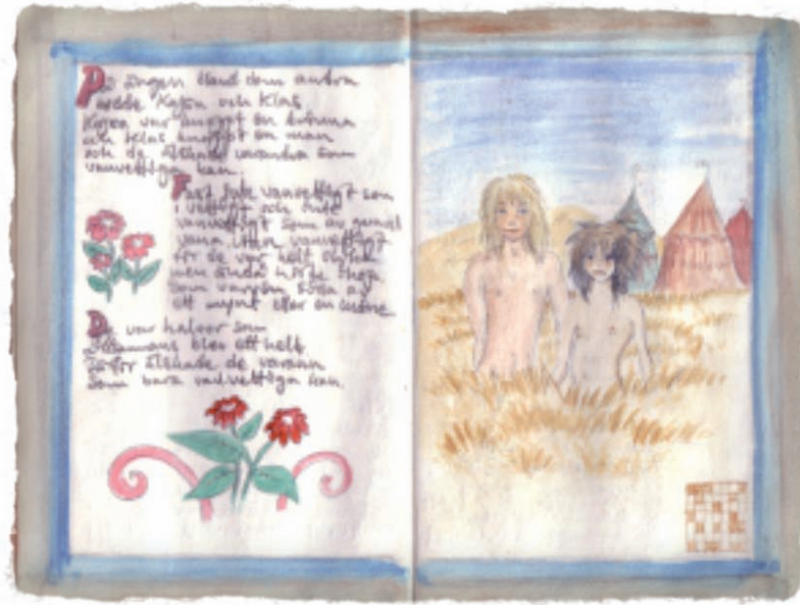 På ängen bland dem andra
Kajsa och Klas
Kajsa var knappt en kvinna
och Klas knappt en man
och de älskade varandra som
vanvettiga kan.
Fast inte vanvettigt som
i vettigt och inte
vanvettigt som av gammal
vana. Utan vanvettigt
för de var helt
men ändå hörde ihop
som
ett mynt eller en
De var halvor som
tillsammans blev ett helt
älskade de varann
som bara vanvettiga kan.